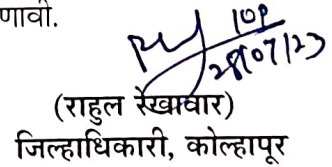 णावी.
28/07/23
(राहुल रेखावार)
जिल्हाधिकारी, कोल्हापूर